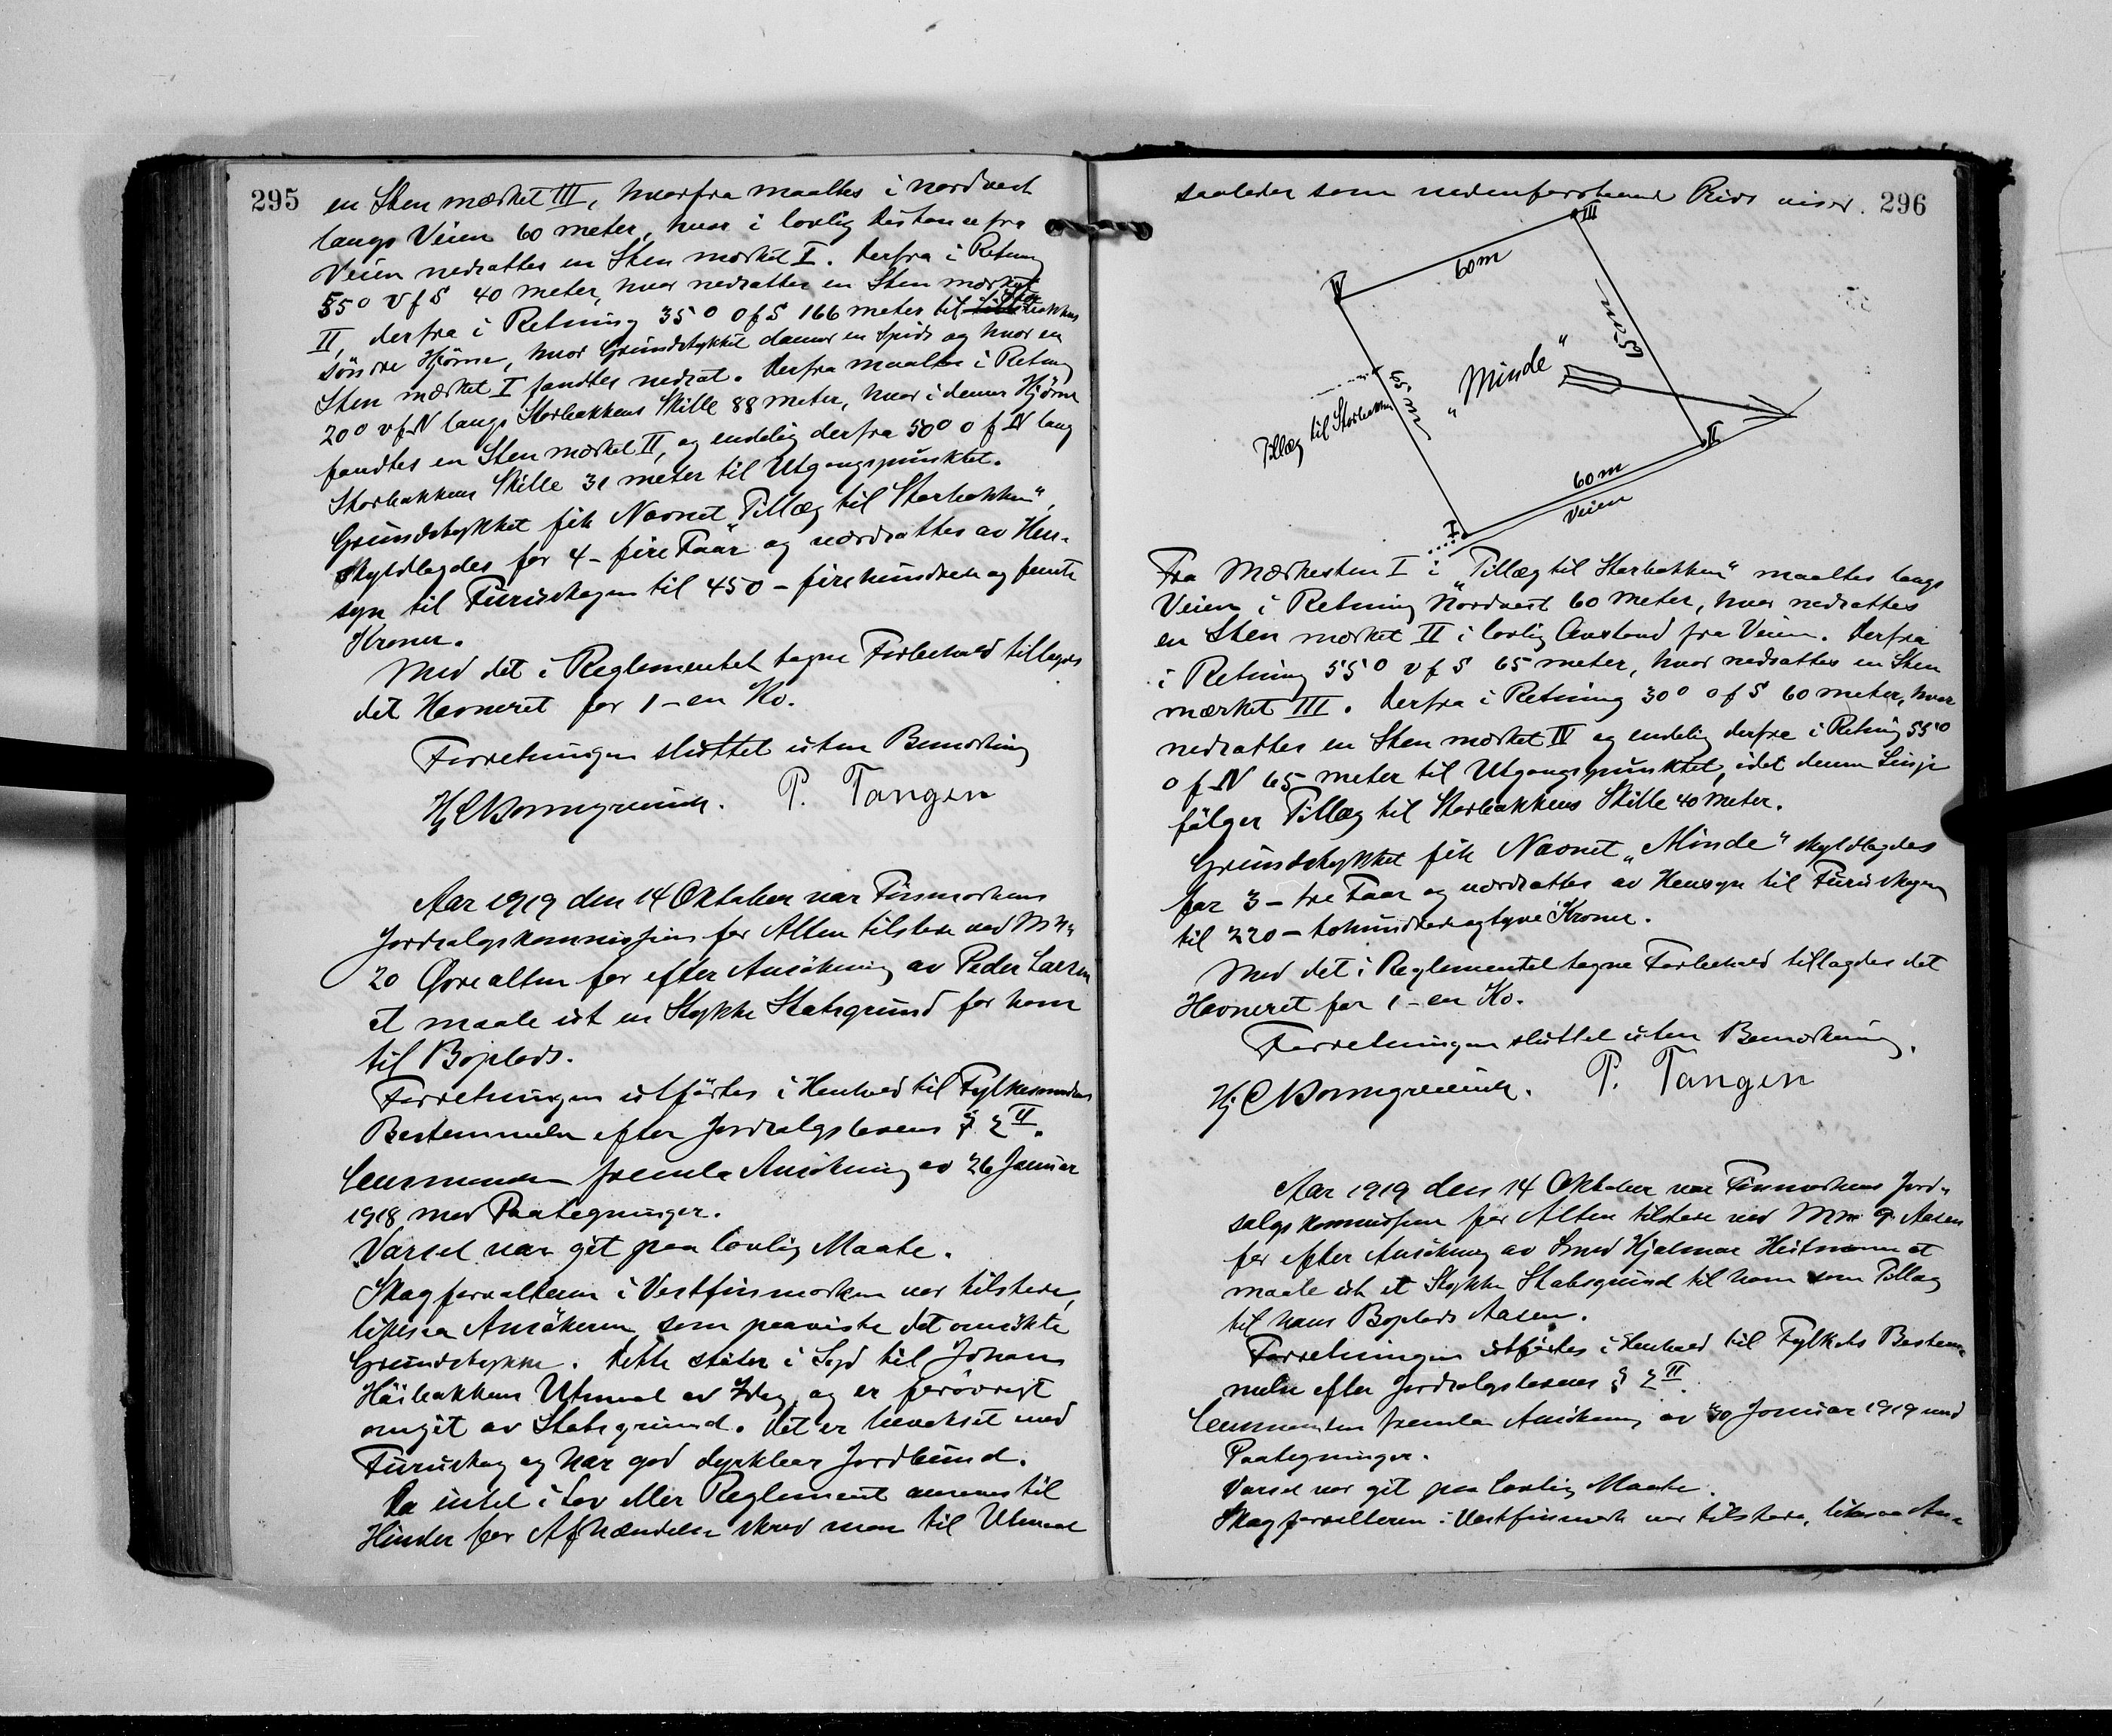 295
en Sten mærket III, hvorfra maaltes i nordvest
langs Veien 60 meter, hvor i lovlig Distance fra
Veien nedsattes en Sten mærket I. Derfra i Retning
55° V f S 40 meter, hvor nedsattes en Sten mærket
II, derfra i Retning 35° O f S 166 meter til Storbakkens
söndre Hjörne, hvor Grundstykket danner en Spids og hvor en
Sten mærket I fandtes nedsat. Derfra maaltes i Retning
20° v f N langs Storbakkens Skille 88 meter, hvor i dennes Hjörne
fandtes en Sten mærket II, og endelig derfra 50° o f N langs
Storbakkens Skille 31 meter til Utgangspunktet.
Grundstykket fik Navnet „Tillæg til Storbakken",
skyldlagdes for 4 - fire Faar og værdsattes av Hen-
syn til Furuskogen til 450 - firehundrede og femti
Kroner.
Med det i Reglementet tagne Forbehold tillagdes
det Havneret for 1 - en Ko.
Forretningen sluttet uten Bemærkning
P. Tangen
Aar 1919 den 14 Oktober var Finmarkens
Jordsalgskommission for Alten tilstede ved M nr
20 Övrealten for efter Ansökning av Peder Larsen
at maale ut en Stykke Statsgrund for ham
til Boplads.
Forretningen utförtes i Henhold til Fylkesmandens
Bestemmelse efter Jordsalgslovens § 2 II.
Lensmanden fremla Ansökning av 26 Januar
1918 med Paategninger.
Varsel var git paa lovlig Maate.
Skogforvalteren i Vestfinmarken var tilstede,
likesaa Ansökeren som paaviste det ansökte
Grundstykke. Dette stöter i Syd til Johan
Höibakkens Utmaal av Idag, og er forövrigt
omgit av Statsgrund. Det er bevokset med
Furuskog og har god dyrkbar Jordbund.
Da intet i Lov eller Reglement ansees til
Hinder for Afhændelse skred man til Utmaal
296
saaledes som nedenforstaaende Rids viser.
III
60m
IV
65m
„Minde"
65m
Tillæg til Storbakken
II
60m
Veien
I
Fra Mærkesten I i „Tillæg til Storbakken" maaltes langs
Veien i Retning Nordvest 60 Meter, hvor nedsattes
en Sten mærket II i lovlig Avstand fra Veien. Derfra
i Retning 55° v f S 65 meter, hvor nedsattes en Sten
mærket III. Derfra i Retning 30° o f S 60 meter, hvor
nedsattes en Sten mærket IV og endelig derfra i Retning 55°
o f N 65 meter til Utgangspunktet, idet denne Linje
fölger Tillæg til Storbakkens Skille 40 Meter.
Grundstykket fik Navnet „Minde" skyldlagdes
for 3 - tre Faar og værdsattes av Hensyn til Furuskogen
til 220 - tohundredeogtyve Kroner.
Med det i Reglementet tagne Forbehold tillagdes det
Havneret for 1 - en Ko.
Forretningen sluttet uten Bemærkning.
P. Tangen
Aar 1919 den 14 Oktober var Finmarkens Jord-
salgskommission for Alten tilstede ved M nr 9 Aasen
for efter Ansökning av Smed Hjalmar Heitmann at
maale ut et Stykke Statsgrund til ham som Tillæg
til hans Boplads Aasen.
Forretningen utförtes i Henhold til Fylkets Bestem-
melse efter Jordsalgslovens § 2 II.
Lensmanden fremla Ansökning av 30 Januar 1919 med
Paategninger.
Varsel var git paa lovlig Maate.
Skogforvalteren i Vestfinmark var tilstede, likesaa An-